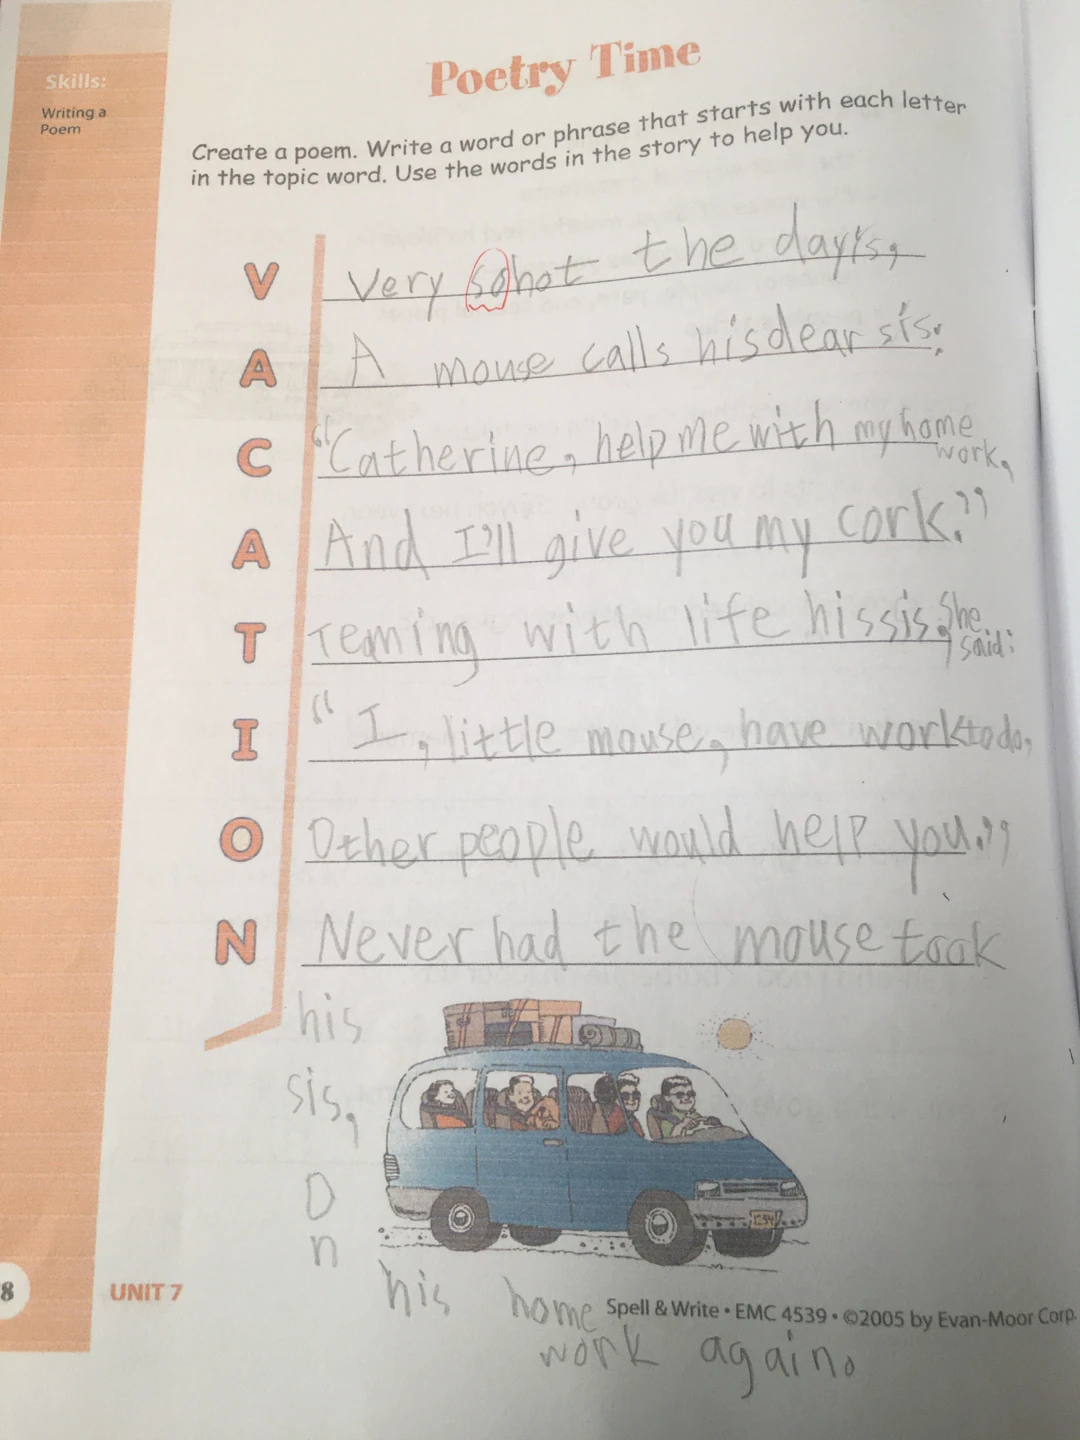 Skills:
Writing a
Poem
Poetry Time
Create a poem. Write a word or phrase that starts with each letter
in the topic word. Use the words in the story to help you.
V Very so hot the day is,
A A mouse calls his dear sis:
C "Catherine, help me with my home
work,
A And I'll give you my cork."
T Teaming with life his sis. She
said:
I "I, little mouse, have work to do,
O Other people would help you."
N Never had the mouse took
his
sis,
O
n
his home
work again.
C54
8
UNIT 7
Spell & Write • EMC 4539 • ©2005 by Evan-Moor Corp.